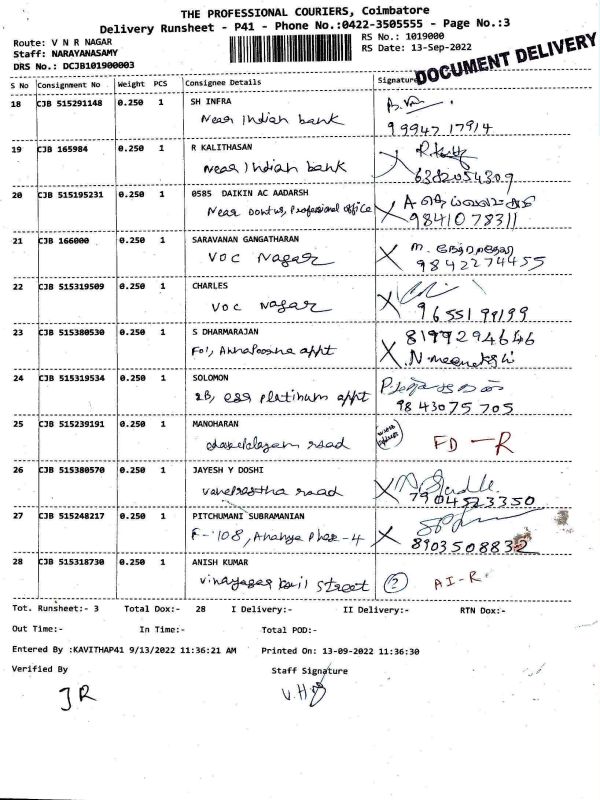 THE PROFESSIONAL COURIERS, Coimbatore
Delivery Runsheet - P41 - Phone No.:0422-3505555 - Page No.:3
Route: V N R NAGAR
RS No.: 1019000
Staff: NARAYANASAMY
RS Date: 13-Sep-2022
DRS No.: DCJB101900003
DOCUMENT DELIVERY
S No Consignment No Weight PCS Consignee Details Signature
18 CJB 515291148 0.250 1 SH INFRA
Near Indian bank
99947 17914
19 CJB 165984 0.250 1 R KALITHASAN
Near Indian bank
6382054309
20 CJB 515195231 0.250 1 0585 DAIKIN AC AADARSH
Near Dontus, Professional office
9841078311
21 CJB 166000 0.250 1 SARAVANAN GANGATHARAN
VOC Nagar
9842274455
22 CJB 515319509 0.250 1 CHARLES
VOC Nagar
96551 99199
23 CJB 515380530 0.250 1 S DHARMARAJAN
8199294646
F01, Annapoorna appt
N. meenakshi
24 CJB 515319534 0.250 1 SOLOMON
2B, ESS Platinum appt
98 43075 705
25 CJB 515239191 0.250 1 MANOHARAN
road
FD - R
26 CJB 515380570 0.250 1 JAYESH Y DOSHI
vanaprastha road
7904523350
27 CJB 515248217 0.250 1 PITCHUMANI SUBRAMANIAN
F-108, Ananya Phase-4
8903508832
28 CJB 515318730 0.250 1 ANISH KUMAR
vinayagar kovil street
? AI-R
Tot. Runsheet:- 3 Total Dox:- 28 I Delivery:- II Delivery:- RTN Dox:-
Out Time:- In Time:- Total POD:-
Entered By :KAVITHAP41 9/13/2022 11:36:21 AM Printed On: 13-09-2022 11:36:30
Verified By Staff Signature
JR